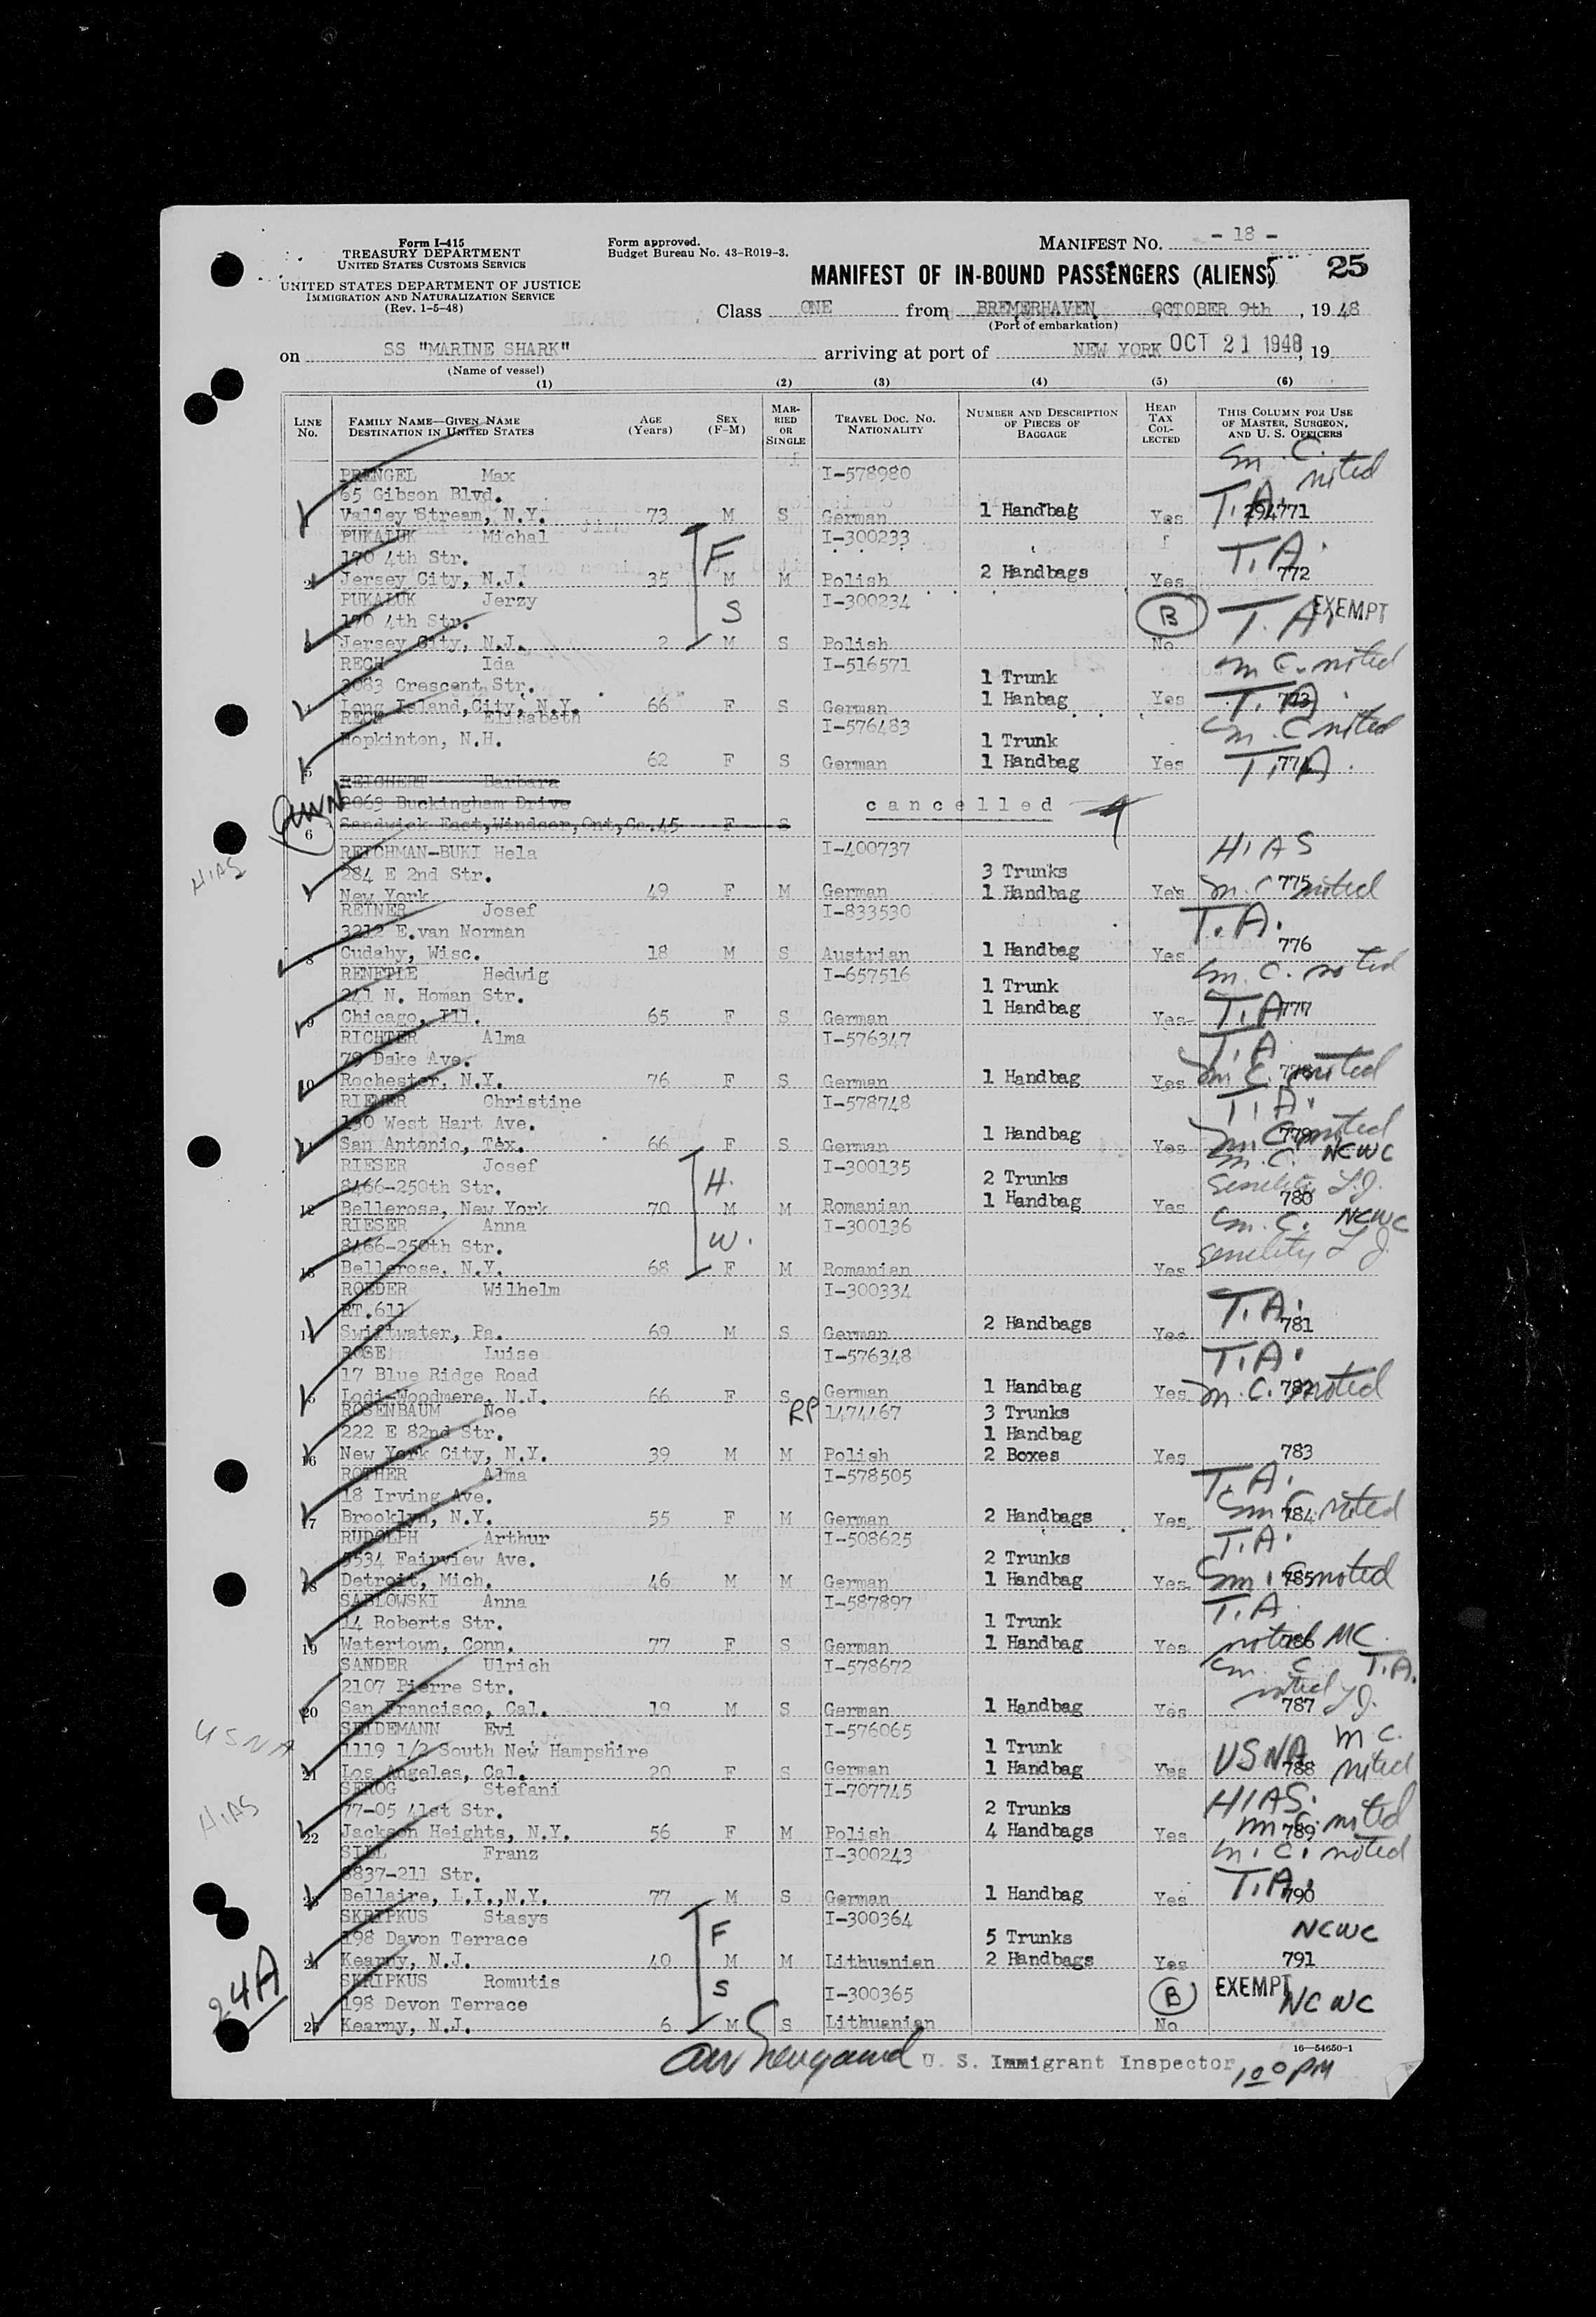 Form I-415
TREASURY DEPARTMENT
UNITED STATES CUSTOMS SERVICE
UNITED STATES DEPARTMENT OF JUSTICE
IMMIGRATION AND NATURALIZATION SERVICE
(Rev. 1-5-48)
Form approved.
Budget Bureau No. 43-R019-3.
MANIFEST NO. - 18 -
MANIFEST OF IN-BOUND PASSENGERS (ALIENS) 25
Class ONE from BREMERHAVEN OCTOBER 9th, 1948
(Port of embarkation)
on SS "MARINE SHARK" arriving at port of NEW YORK OCT 21 1948, 19
(Name of vessel)
(1) (2) (3) (4) (5) (6)
LINE No. FAMILY NAME—GIVEN NAME DESTINATION IN UNITED STATES AGE (Years) SEX (F-M) MARRIED OR SINGLE TRAVEL DOC. No. NATIONALITY NUMBER AND DESCRIPTION OF PIECES OF BAGGAGE HEAD TAX COLLECTED THIS COLUMN FOR USE OF MASTER, SURGEON, AND U. S. OFFICERS
PRENGEL Max I-578980 m. C. noted
65 Gibson Blvd. T.A.
Valley Stream, N.Y. 73 M S German 1 Handbag Yes 294771
PUKALUK Michal I-300233 F T.A.
170 4th Str.
2 Jersey City, N.J. 35 M M Polish 2 Handbags Yes 772
PUKALUK Jerzy I-300234 S B T.A. EXEMPT
170 4th Str.
3 Jersey City, N.J. 2 M S Polish No
RECH Ida I-516571 m C. noted
3083 Crescent Str. 1 Trunk
Long Island City, N.Y. 66 F S German 1 Hanbag Yes T.A. 773
RECH Elisabeth I-576483 m. C noted
Hopkinton, N.H. 1 Trunk
5 62 F S German 1 Handbag Yes T.A. 774
REICHERT Barbara
2069 Buckingham Drive cancelled
6 Sandwick East,Windsor,Ont,Ca. 45 F S
HIAS
REICHMAN-BUKI Hela I-400737 HIAS
284 E 2nd Str. 3 Trunks
New York 49 F M German 1 Handbag Yes m. C 775 noted
REINER Josef I-833530 T.A.
3212 E.van Norman
8 Cudahy, Wisc. 18 M S Austrian 1 Handbag Yes 776
RENETLE Hedwig I-657516 m. C. noted
241 N. Homan Str. 1 Trunk
9 Chicago, Ill. 65 F S German 1 Handbag Yes T.A. 777
RICHTER Alma I-576347 T.A.
78 Dake Ave.
10 Rochester, N.Y. 76 F S German 1 Handbag Yes m C. noted
RIEMER Christine I-578748 T.A.
130 West Hart Ave.
11 San Antonio, Tex. 66 F S German 1 Handbag Yes m. C 779 noted
RIESER Josef I-300135 H. m. C. NCWC
8466-250th Str. 2 Trunks Senility L.J.
12 Bellerose, New York 70 M M Romanian 1 Handbag Yes 780
RIESER Anna I-300136 W. m. C. NCWC
8466-250th Str. Senility L J.
13 Bellerose, N.Y. 68 F M Romanian Yes
ROEDER Wilhelm I-300334
RT.611 T.A.
14 Swiftwater, Pa. 69 M S German 2 Handbags Yes 781
ROSE Luise I-576348 T.A.
17 Blue Ridge Road
Lodi-Woodmere, N.J. 66 F S German 1 Handbag Yes m. C. 782 noted
ROSENBAUM Noe RP 1474467 3 Trunks
222 E 82nd Str. 1 Handbag
16 New York City, N.Y. 39 M M Polish 2 Boxes Yes 783
ROTHER Alma I-578505 T.A.
18 Irving Ave.
17 Brooklyn, N.Y. 55 F M German 2 Handbags Yes m C 784 noted
RUDOLPH Arthur I-508625 T.A.
5534 Fairview Ave. 2 Trunks
18 Detroit, Mich. 46 M M German 1 Handbag Yes m. C 785 noted
SABLOWSKI Anna I-587897 T.A.
14 Roberts Str. 1 Trunk
19 Watertown, Conn. 77 F S German 1 Handbag Yes noted MC. 786
SANDER Ulrich I-578672 m. C T.A.
2107 Pierre Str. noted L J.
20 San Francisco, Cal. 19 M S German 1 Handbag Yes 787
USNA
SEIDEMANN Evi I-576065 m C.
1119 1/2 South New Hampshire 1 Trunk
21 Los Angeles, Cal. 20 F S German 1 Handbag Yes USNA 788 noted
HIAS
SEROG Stefani I-707745 HIAS.
77-05 41st Str. 2 Trunks
22 Jackson Heights, N.Y. 56 F M Polish 4 Handbags Yes m C. 789 noted
SILL Franz I-300243 m. C. noted
8837-211 Str.
23 Bellaire, L.I.,N.Y. 77 M S German 1 Handbag Yes T.A. 790
SKRIPKUS Stasys I-300364 F NCWC
198 Davon Terrace 5 Trunks
24 Kearny, N.J. 40 M M Lithuanian 2 Handbags Yes 791
24A
SKRIPKUS Romutis I-300365 S B EXEMPT NCWC
198 Devon Terrace
25 Kearny, N.J. 6 M S Lithuanian No
16—54650-1
U. S. Immigrant Inspector 1 00 PM